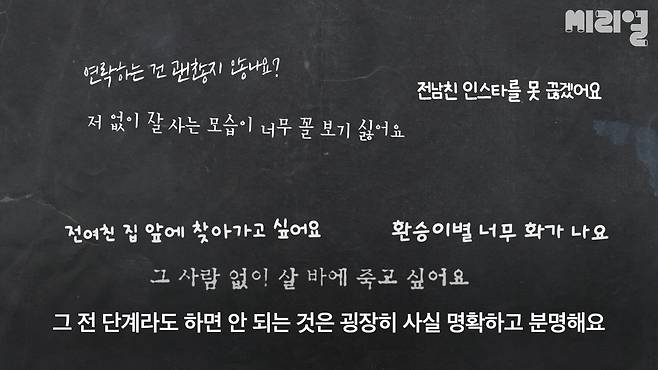 씨리얼
연락하는 건 괜찮지 않나요?
전남친 인스타를 못 끊겠어요
저 없이 잘 사는 모습이 너무 꼴 보기 싫어요
전여친 집 앞에 찾아가고 싶어요
환승이별 너무 화가 나요
그 사람 없이 살 바에 죽고 싶어요
그 전 단계라도 하면 안 되는 것은 굉장히 사실 명확하고 분명해요